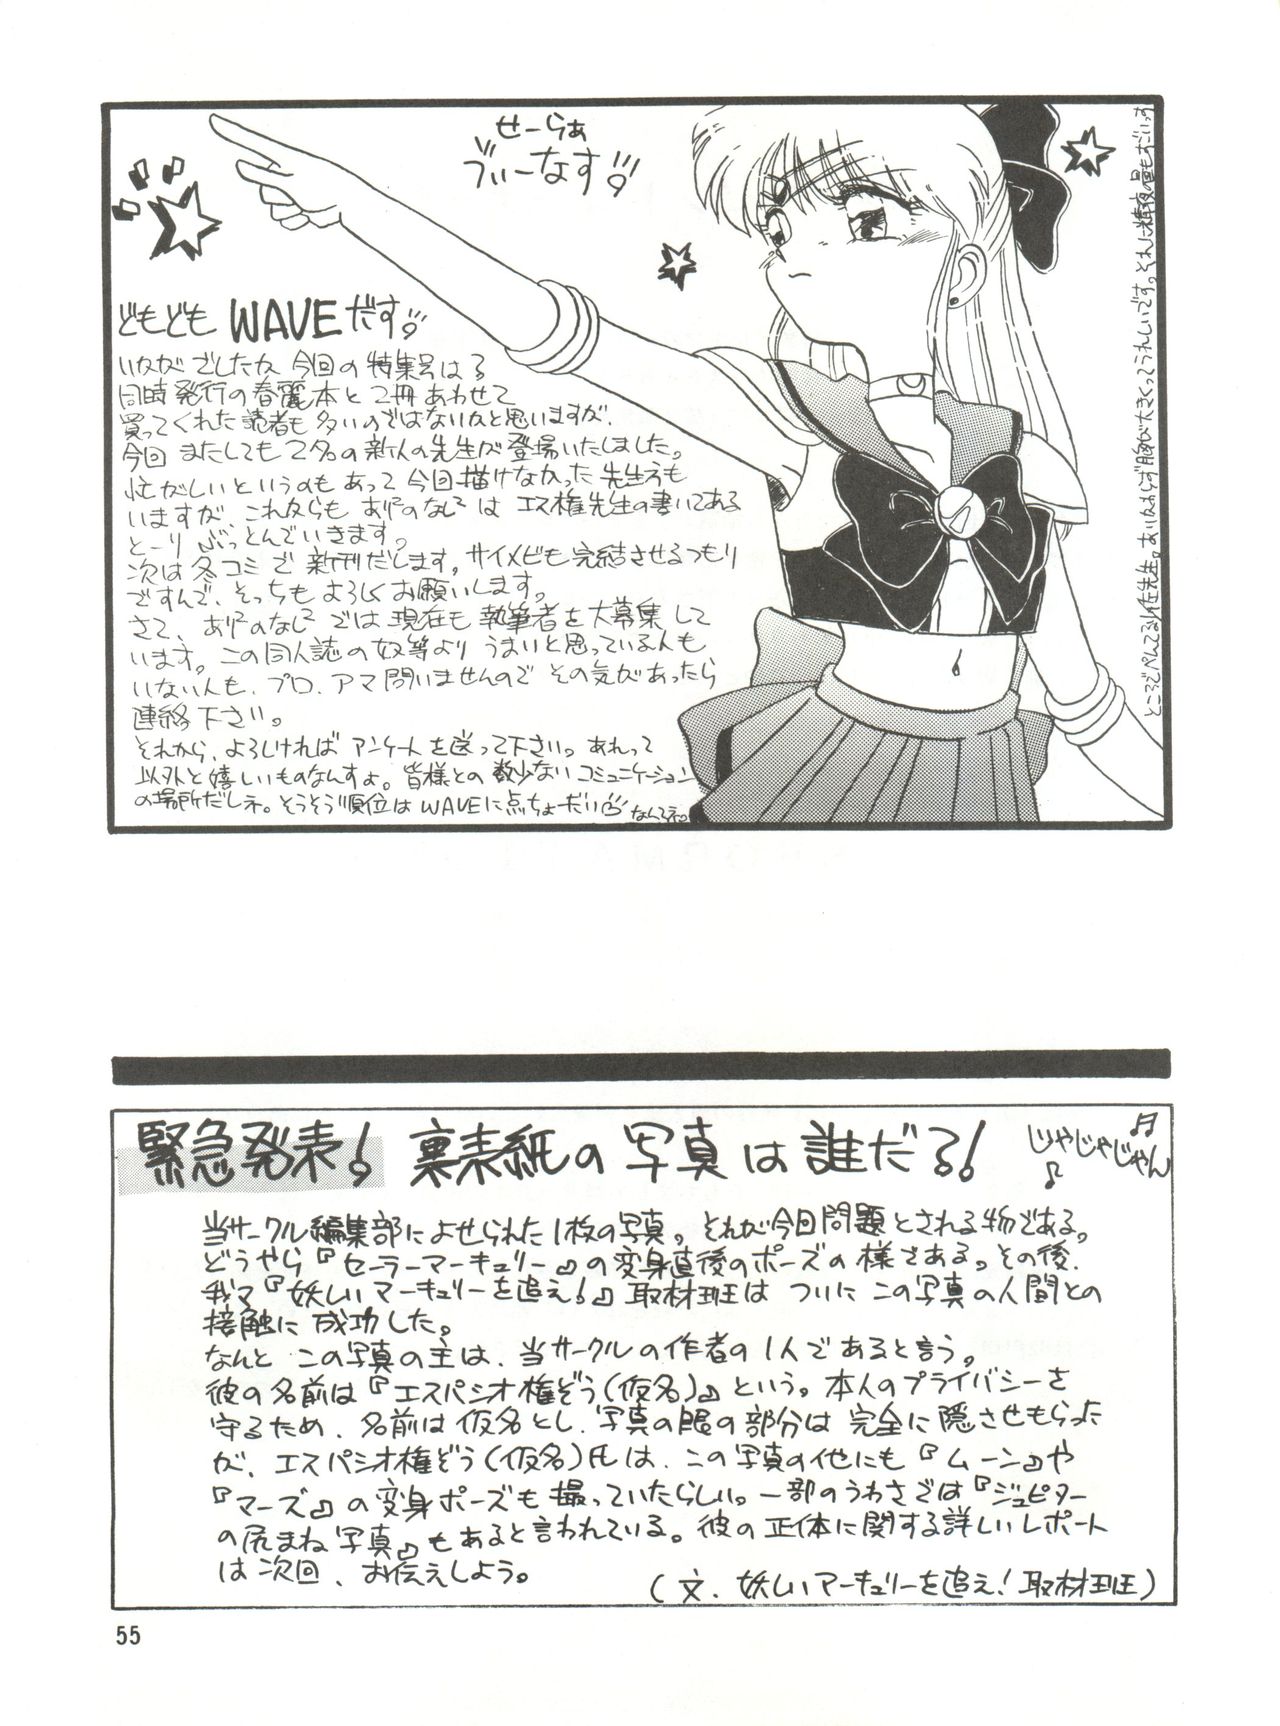 せーらぁ
ぶぃーなす!!
どもども WAVEだす!!
いかがでしたか 今回の特集号は?
同時発行の春麗本と2冊あわせて
買ってくれた読者も多いのではないかと思いますが、
今回 またしても2名の新人の先生が登場いたしました。
忙がしいというのもあって今回描けなかった先生方も
いますが これからも ありすのなしは エス権先生の書いてある
とーり ぶっとんでいきます。
次は冬コミで新刊だします。サイメビも完結させるつもり
ですんで、そっちもよろしくお願いします。
さて、では現在も執筆者を大募集して
います。この同人誌の奴等よりうまいと思っている人も
いない人も、プロ、アマ問いませんので その気があったら
連絡下さい。
それから、よろしければ アンケートを送って下さい。あれって
以外と嬉しいものなんすよ。皆様との数少ないコミュニケーション
の場所だしネ。そうそう順位はWAVEに点ちょーだい なんてネ。
ところでぺんてるり任先生。ありがたがれず胸が大きくってうれしいです。それに精夜量もすごいっす
緊急発表! 裏表紙の写真は誰だろ! じゃじゃじゃん
当サークル編集部によせられた1枚の写真。それが今回問題とされる物である。
どうやら『セーラーマーキュリー』の変身直後のポーズの様である。その後、
我々『妖しいマーキュリーを追え!』取材班は ついに この写真の人間との
接触に成功した。
なんと この写真の主は、当サークルの作者の1人であると言う。
彼の名前は『エスパシオ権ぞう(仮名)』という。本人のプライバシーを
守るため、名前は仮名とし、写真の眼の部分は完全に隠させもらった
が、エスパシオ権ぞう(仮名)氏は、この写真の他にも『ムーン』や
『マーズ』の変身ポーズも撮っていたらしい。一部のうわさでは『ジュピター
の尻まね写真』もあると言われている。彼の正体に関する詳しいレポート
は次回、お伝えしよう。
(文、妖しいマーキュリーを追え! 取材班)
55